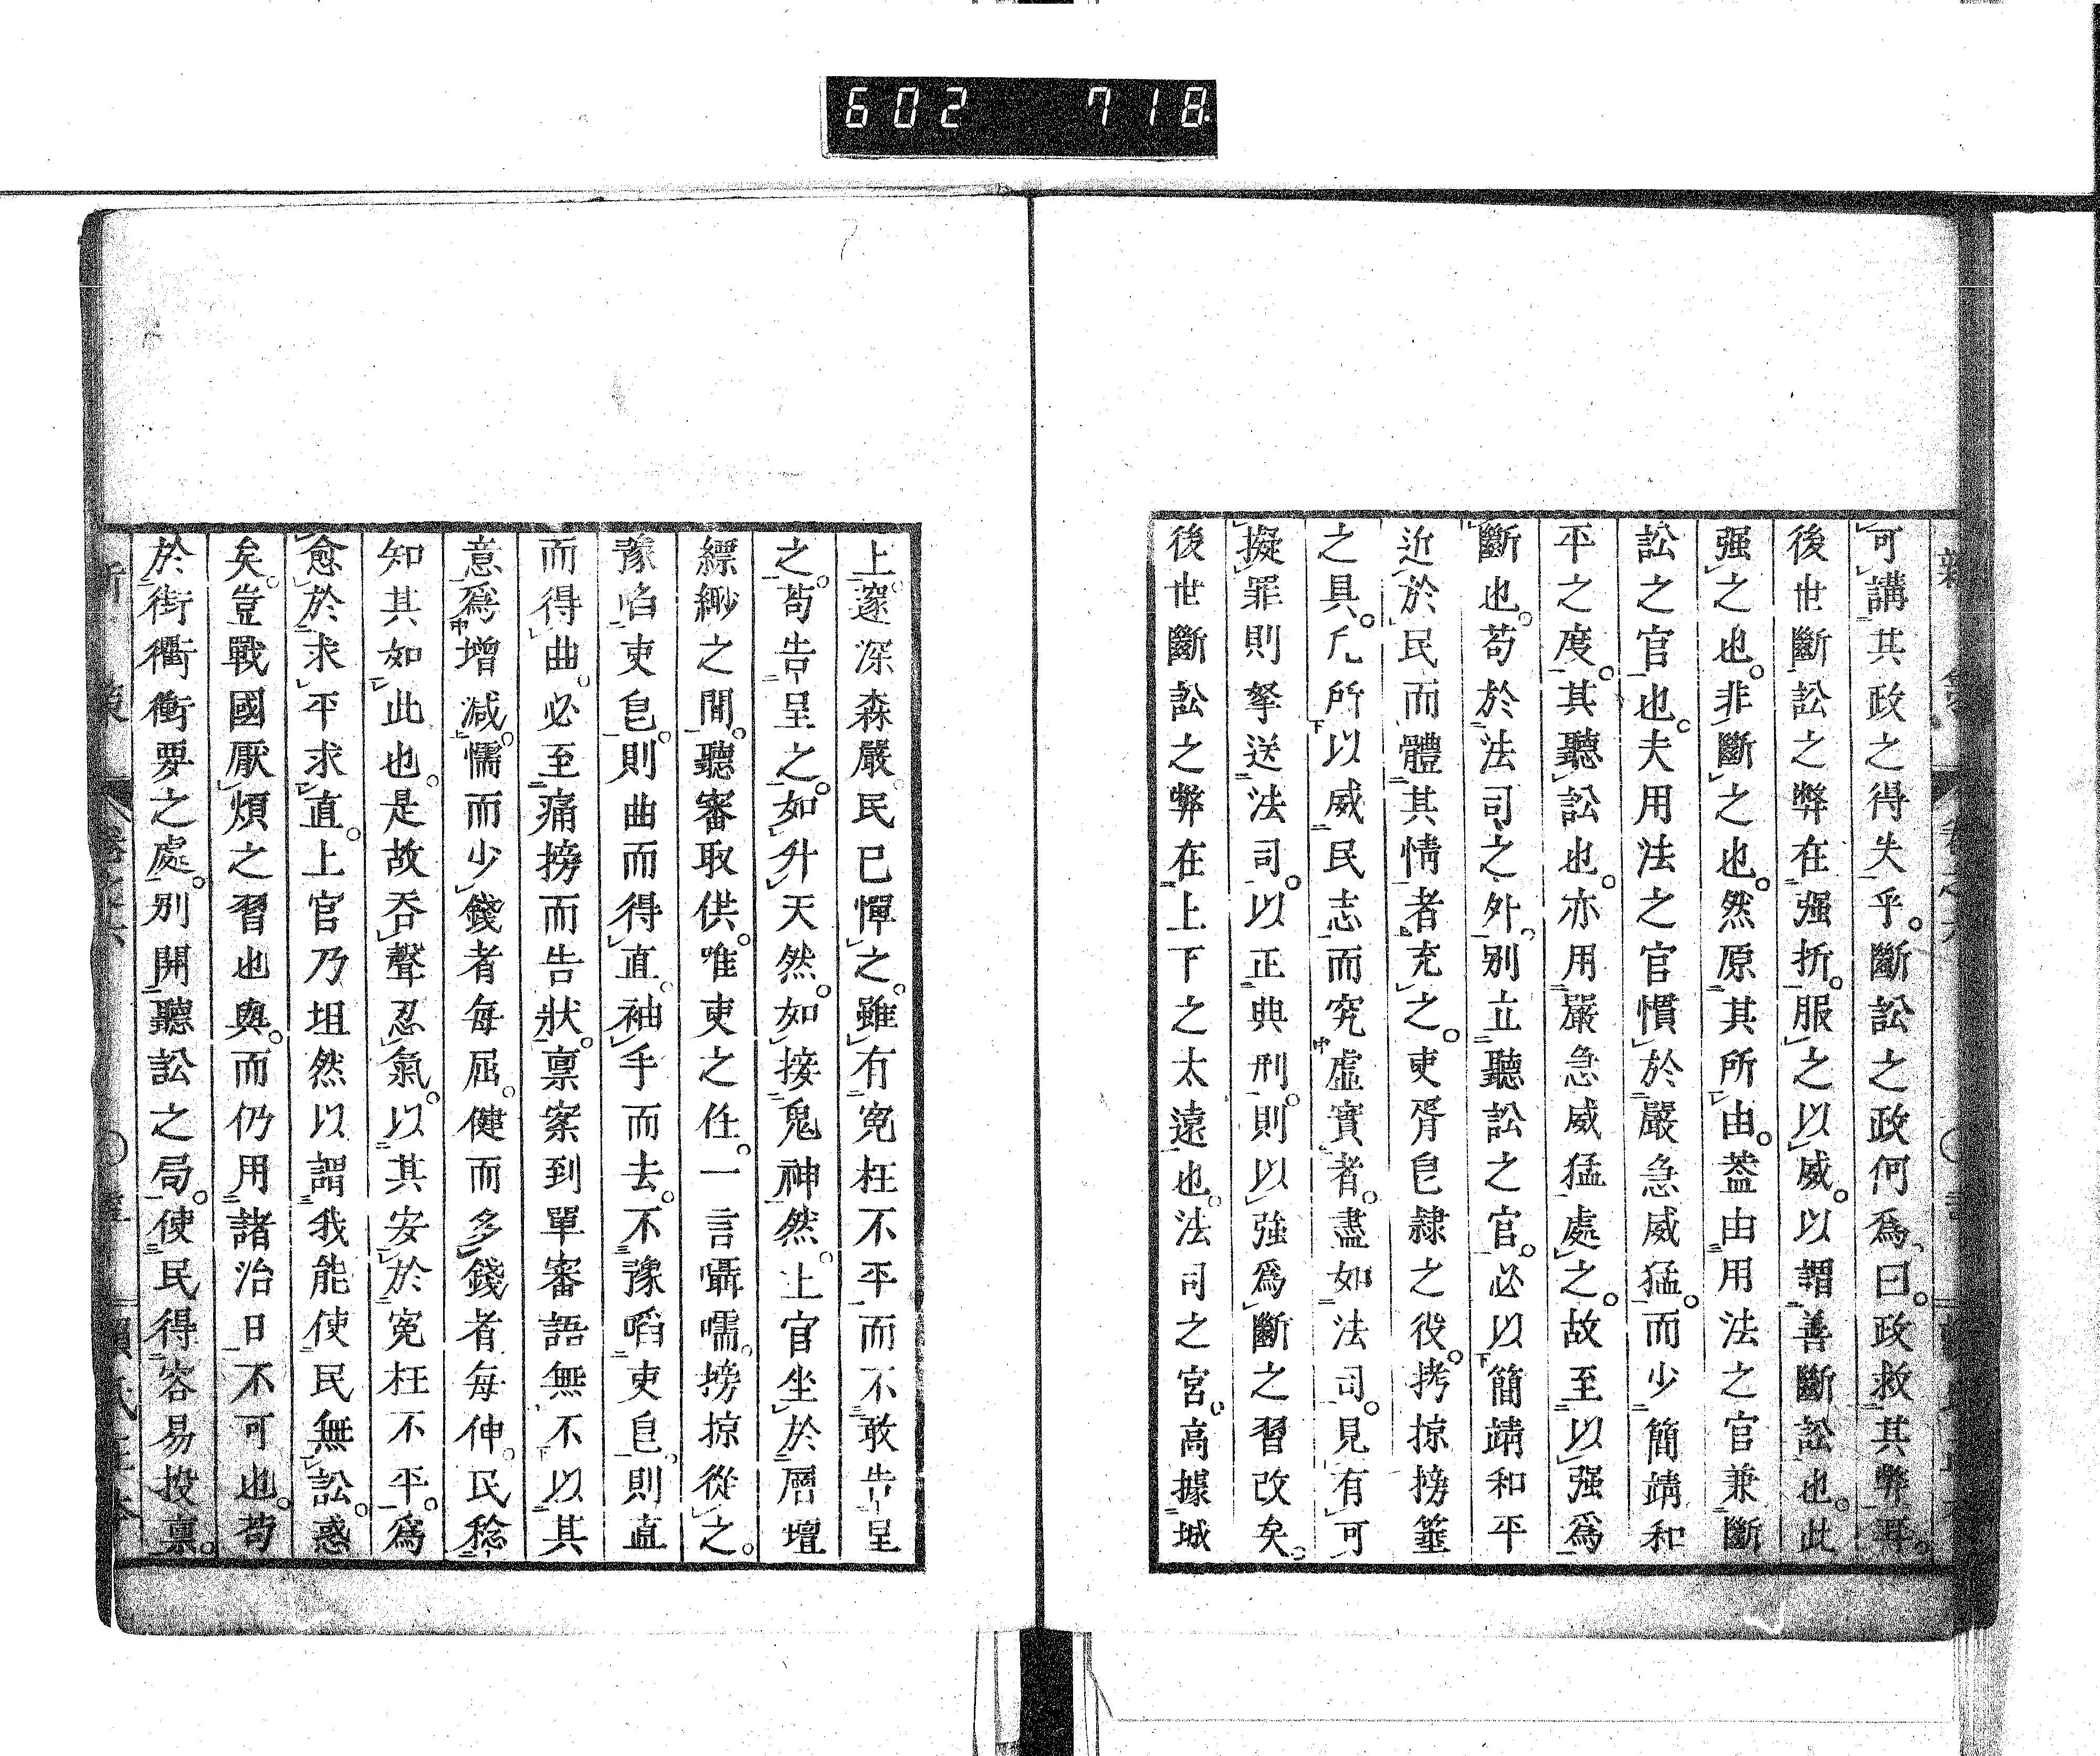 602 718
可講其政之得失乎。斷訟之政何爲。曰。政救其弊耳。
後世斷訟之弊在强折。服之以威。以謂善斷訟也。此
强之也。非斷之也。然原其所由。蓋由用法之官兼斷
訟之官也。夫用法之官慣於嚴急威猛。而少簡靖和
平之度。其聽訟也。亦用嚴急威猛處之。故至以强爲
斷也。苟於法司之外。別立聽訟之官。必以簡靖和平
近於民而體其情者充之。吏胥皀隷之役。拷掠搒箠
之具。凡所以威民志而究虛實者。盡如法司。見有可
擬罪則拏送法司。以正典刑。則以強爲斷之習改矣。
後世斷訟之弊在上下之太遠也。法司之官。高據城
上。邃深森嚴。民已憚之。雖有寃枉不平而不敢告呈
之。苟告呈之。如升天然。如接鬼神然。上官坐於層壇
縹緲之間。聽審取供。唯吏之任。一言囁嚅。搒掠從之。
豫啗吏皀。則曲而得直。袖手而去。不豫啗吏皀。則直
而得曲。必至痛搒而告狀。禀案到單審語無不以其
意爲增減。懦而少錢者每屈。健而多錢者每伸。民稔
知其如此也。是故吞聲忍氣。以其安於寃枉不平。爲
愈於求平求直。上官乃坦然以謂我能使民無訟。惑
矣。豈戰國厭煩之習也與。而仍用諸治日不可也。苟
於街衢衝要之處。別開聽訟之局。使民得容易投禀。
新策 卷之六